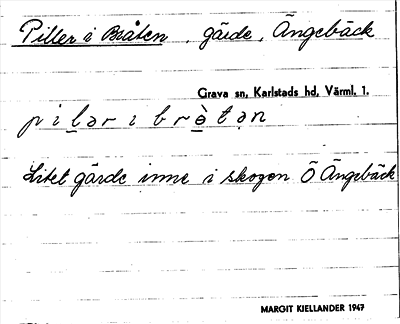 Piller i Bråten, gärde, Ängebäck
Grava sn, Karlstads hd, Värml. l.
p i l ə r i b r è t ə n
Litet gärde inne i skogen Ö Ängebäck
MARGIT KIELLANDER 1947